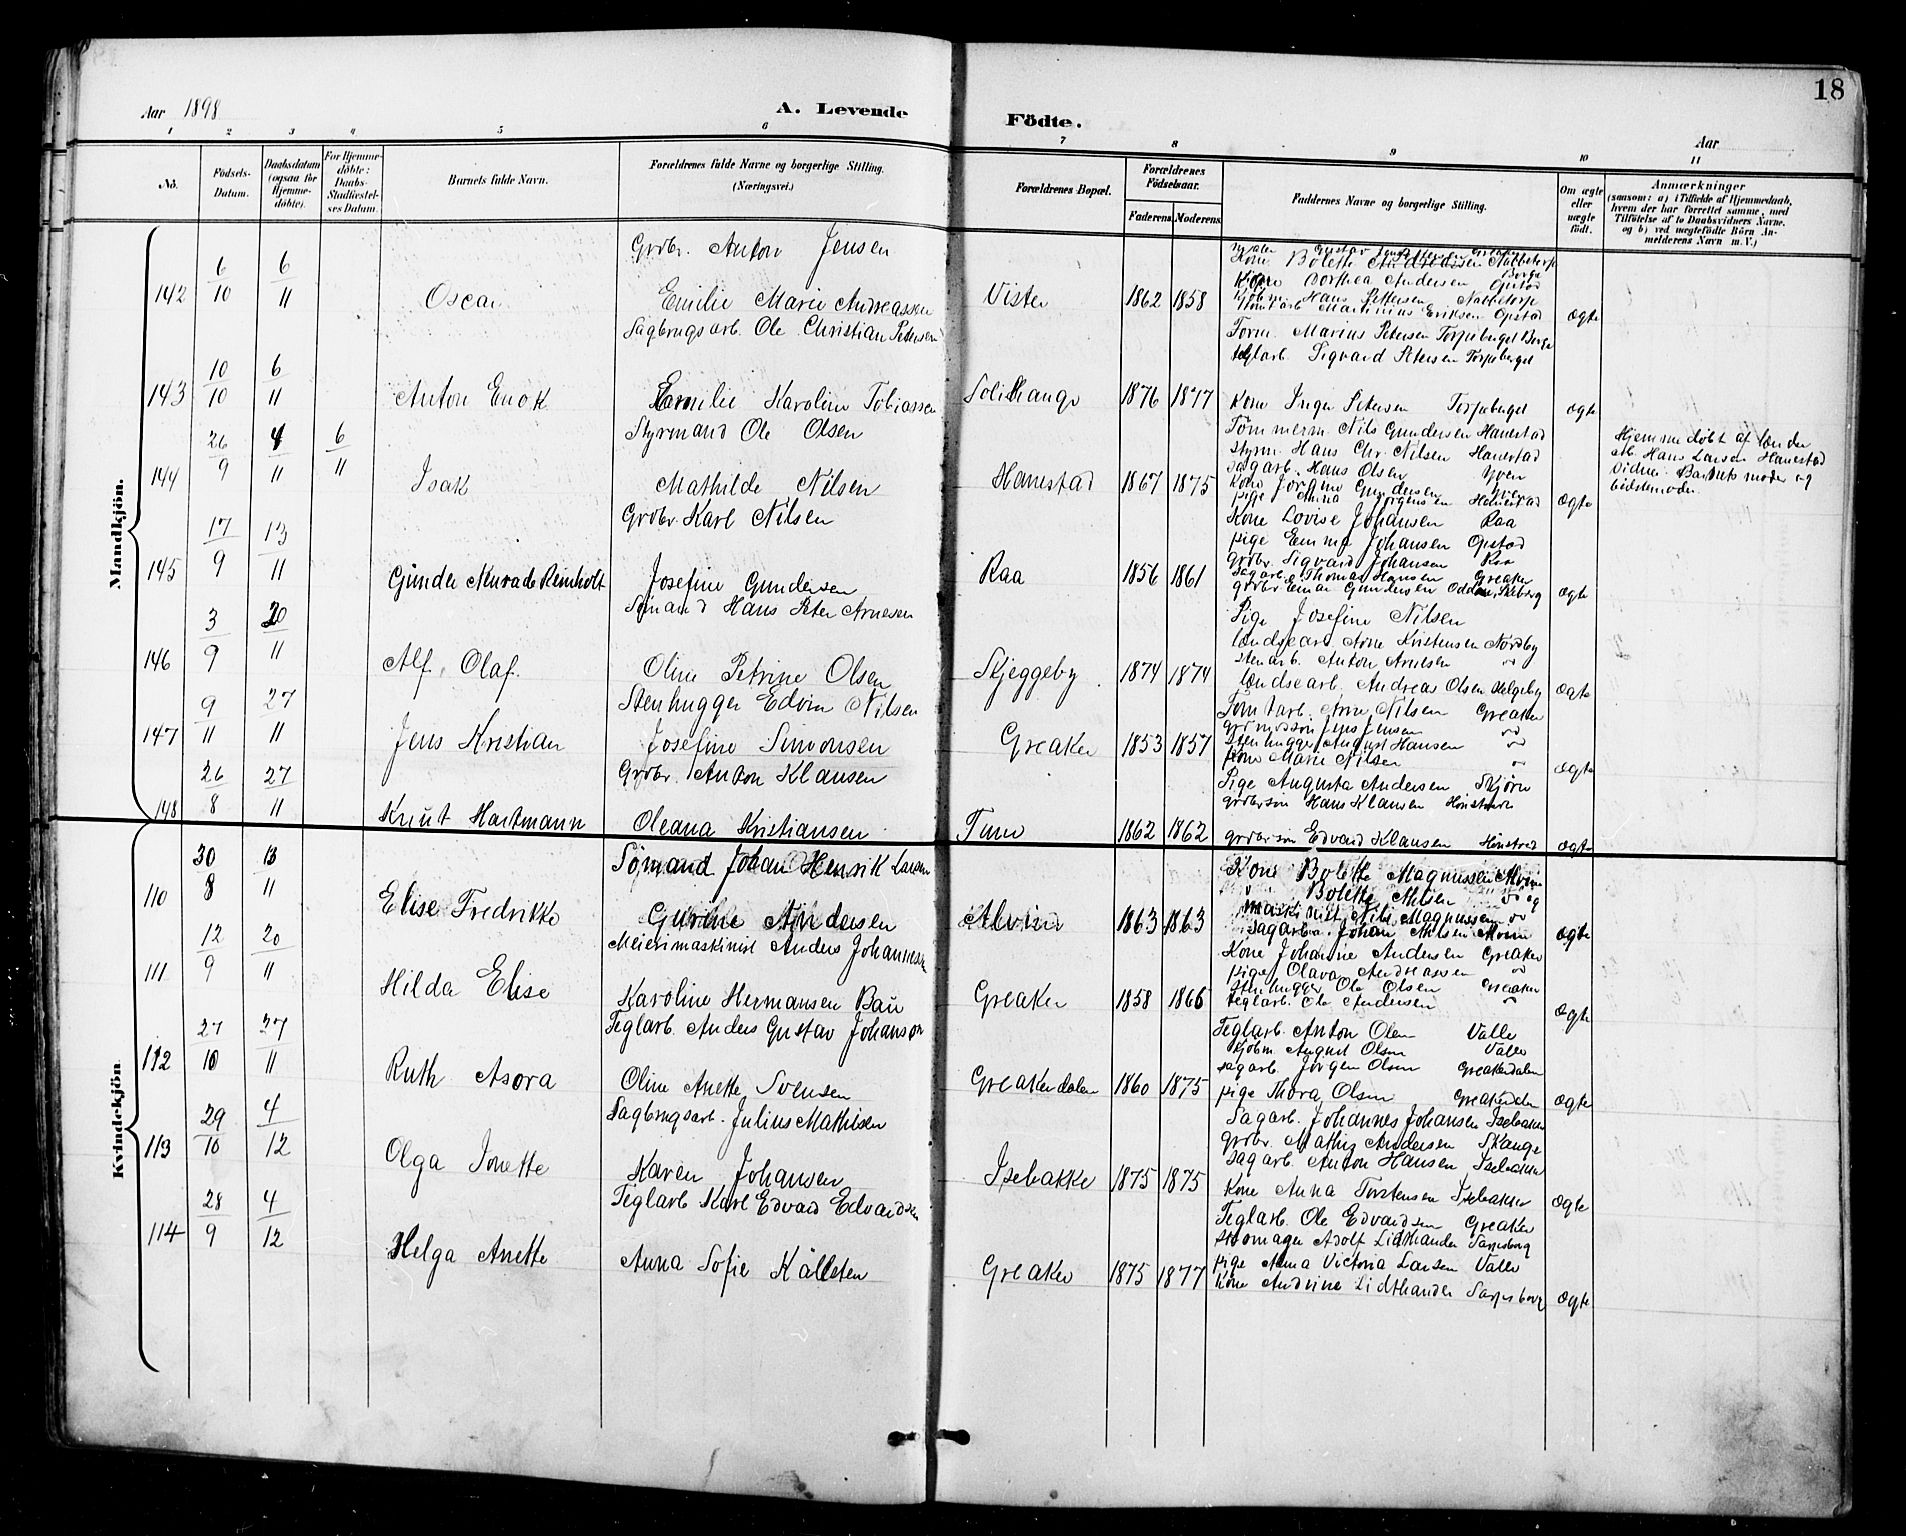 18
Aar 1898
A. Levende
Födte.
Aar
1 2 3 4 5 6 7 8 9 10 11
No.
Födsels-Datum.
Daabsdatum (ogsaa for Hjemme-döbte).
For Hjemme-döbte: Daabs-Stadfæstel-ses Datum.
Barnets fulde Navn.
Forældrenes fulde Navne og borgerlige Stilling.
(Næringsvei.)
Forældrenes Bopæl.
Forældrenes Födselsaar.
Faderens. Moderens.
Faddernes Navne og borgerlige Stilling.
Om ægte eller uægte födt.
Anmærkninger
(saasom: a) i Tilfælde af Hjemmedaab, hvem der har forrettet samme, med Tilföielse af to Daabsvidners Navne. og b) ved uægtefödte Börn An-melderens Navn m. V.)
Mandkjön.
Grdbr. Anton Jensen
142 6/10 6/11 Oscar Emilie Marie Andreassen Vister 1862 1858 ægte
Kone Bolette Andresen Nabbetorp
Kone Dorthea Andersen Opstad
Hans Pettersen Nabbetorp
Tomtarb Martinius Eriksen Opstad
Sagbrugsarb. Ole Christian Petersen
143 10/10 6/11 Anton Enok Emilie Karoline Tobiassen 1876 1877 ægte
Form. Marius Petersen Torpeberget Borge
teglarb. Sigvard Petersen Torpeberget
Kone Inga Petersen Torpeberget
Styrmand Ole Olsen
144 26/9 4/11 6/11 Isak Mathilde Nilsen Hanestad 1867 1875 ægte
Tømmerm. Nils Gundersen Hanestad
styrm. Hans Chr. Nilsen Hanestad
sagarb. Hans Olsen Yven
Kone Jørgine Gundersen Yven
pige Anna Jørgensen Hanestad
Hjemmedøbt af lændse
arb. Hans Larsen Hanestad
vidner Barnets moder og
bedstemoder.
Grdbr. Karl Nilsen
145 17/9 13/11 Gunder Konrad Reinholt Josefine Gundersen Raa 1856 1861 ægte
Kone Lovise Johansen Raa
pige Emma Johansen Opstad
grdbr. Sigvard Johansen Raa
sagarb. Thomas Hansen Greaker
grdbr Einar Gundersen Odden, Skeberg
Sømand Hans Peter Arnesen
146 3/9 20/11 Alf Olaf. Oline Petrine Olsen Skjeggeby. 1874 1874 ægte
Pige Josefine Nilsen
lændsearb. Arne Kristensen Nordby
stenarb. Anton Arnesen do
lændsearb. Andreas Olsen Helgeby
Stenhugger Edvin Nilsen
147 9/11 27/11 Jens Kristian Josefine Simonsen Greaker 1853 1857 ægte
Tomtarb. Arne Nilsen Greaker
grdmdssøn Jens Jensen do
Stenhugger August Hansen do
Kone Marie Nilsen do
Grdbr. Anton Klausen
148 26/8 27/11 Knut Hartmann Oleana Kristiansen Tune 1862 1862 ægte
Pige Augusta Andersen Skjørn
grdbrsøn Hans Klausen
grdbrsøn Edvard Klausen
Kvindekjön
Sømand Johan Henrik Larsen
110 30/8 13/11 Elise Fredrikke Gurine Andersen Alvim 1863 1863 ægte
Kone Bolette Magnussen Alvim
Bolette Nilsen do og
maskinist Nils Magnussen do
sagarb. Johan Nilsen Alvim
Meierimaskinist Anders Johannesen
111 12/9 20/11 Hilda Elise Karoline Hermansen Bau Greaker 1858 1866 ægte
Kone Johanne Andersen Greaker
pige Olava Andreassen do
Stenhugger Ole Olsen Greaker
teglarb. Ole Andersen do
Teglarb. Anders Gustav Johanson
112 27/10 27/11 Ruth Asora Oline Anette Svensen Greakerdalen 1860 1875 ægte
Teglarb. Anton Olsen Valle
Kjøbm. August Olsen Valle
sagarb. Jørgen Olsen Greakerdalen
pige Thora Olsen Greakerdalen
Sagbrugsarb. Julius Mathisen
113 29/10 4/12 Olga Jonette Karen Johansen Isebakke 1875 1875 ægte
Sagarb. Johannes Johansen Isebakke
grdbr. Mathis Andersen Skange
sagarb. Anton Hansen Isebakke
Kone Anna Torstensen Isebakke
Teglarb Karl Edvard Edvardsen
114 28/9 4/12 Helga Anette Anna Sofie Källsten Greaker 1875 1877 ægte
Teglarb. Ole Edvardsen Greaker
skomager Adolf Lidthander Sarpsborg
pige Anna Victoria Larsen Valle
Kone Andrine Lidthander Sarpsborg